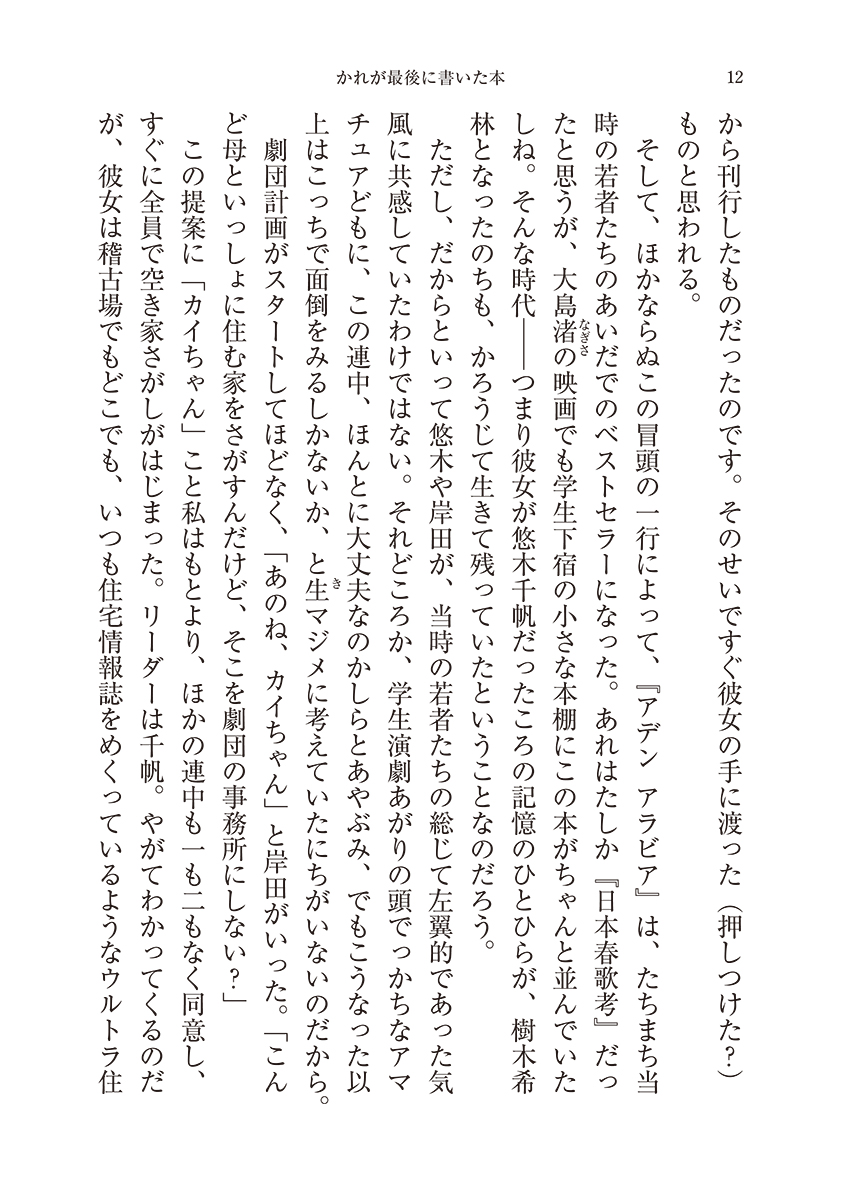 かれが最後に書いた本
12
から刊行したものだったのです。そのせいですぐ彼女の手に渡った（押しつけた？）
ものと思われる。
そして、ほかならぬこの冒頭の一行によって、『アデン アラビア』は、たちまち当
時の若者たちのあいだでのベストセラーになった。あれはたしか『日本春歌考』だっ
たと思うが、大島渚の映画でも学生下宿の小さな本棚にこの本がちゃんと並んでいた
なぎさ
しね。そんな時代――つまり彼女が悠木千帆だったころの記憶のひとひらが、樹木希
林となったのちも、かろうじて生きて残っていたということなのだろう。
ただし、だからといって悠木や岸田が、当時の若者たちの総じて左翼的であった気
風に共感していたわけではない。それどころか、学生演劇あがりの頭でっかちなアマ
チュアどもに、この連中、ほんとに大丈夫なのかしらとあやぶみ、でもこうなった以
上はこっちで面倒をみるしかないか、と生マジメに考えていたにちがいないのだから。
き
劇団計画がスタートしてほどなく、「あのね、カイちゃん」と岸田がいった。「こん
ど母といっしょに住む家をさがすんだけど、そこを劇団の事務所にしない？」
この提案に「カイちゃん」こと私はもとより、ほかの連中も一も二もなく同意し、
すぐに全員で空き家さがしがはじまった。リーダーは千帆。やがてわかってくるのだ
が、彼女は稽古場でもどこでも、いつも住宅情報誌をめくっているようなウルトラ住